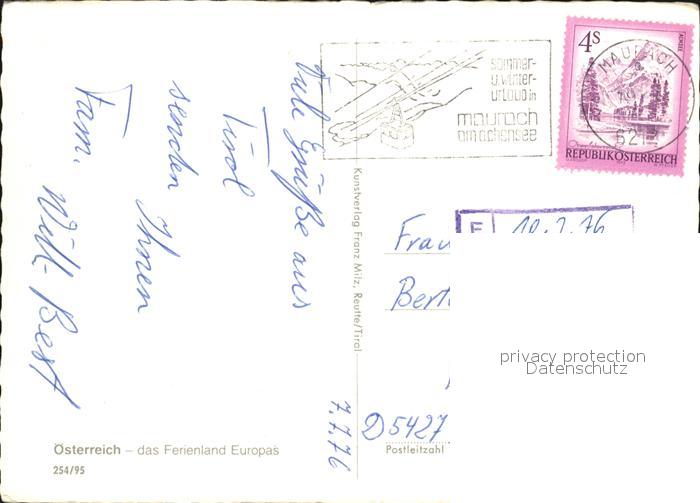 7.7.76
Viele Grüße aus
Tirol
senden Ihnen
Fam. Will. Best
Österreich – das Ferienland Europas
254/95
Kunstverlag Franz Milz, Reutte/Tirol
sommer-
u. winter-
urlaub in
maurach
am achensee
4S
ALMSEE
REPUBLIK ÖSTERREICH
MAURACH
621
E 10.7.76
Frau
Bert
D5427
Postleitzahl
privacy protection
Datenschutz